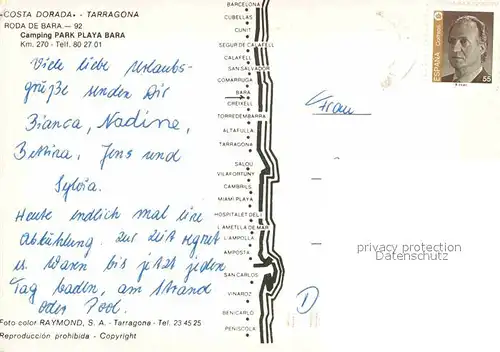 «COSTA DORADA» - TARRAGONA
RODA DE BARA — 92
Camping PARK PLAYA BARA
Km. 270 - Telf. 80 27 01
Viele liebe Urlaubs-
grüße senden Dir
Bianca, Nadine,
Bettina, Jens und
Sylvia.
Heute endlich mal eine
Abkühlung. Zur Zeit regnet
es. Waren bis jetzt jeden
Tag baden, am Strand
oder Pool.
Foto color RAYMOND, S. A. - Tarragona - Tel. 23 45 25
Reproducción prohibida - Copyright
BARCELONA
CUBELLAS
CUNIT
SEGUR DE CALAFELL
CALAFELL
SAN SALVADOR
COMARRUGA
BARA
CREIXELL
TORREDEMBARRA
ALTAFULLA
TARRAGONA
SALOU
VILAFORTUNY
CAMBRILS
MIAMI PLAYA
HOSPITALET DEL I.
L'AMETLLA DE MAR
L'AMPOLLA
AMPOSTA
SAN CARLOS
VINAROZ
BENICARLO
PEÑISCOLA
ESPAÑA
Correos
55
Frau
privacy protection
Datenschutz
D